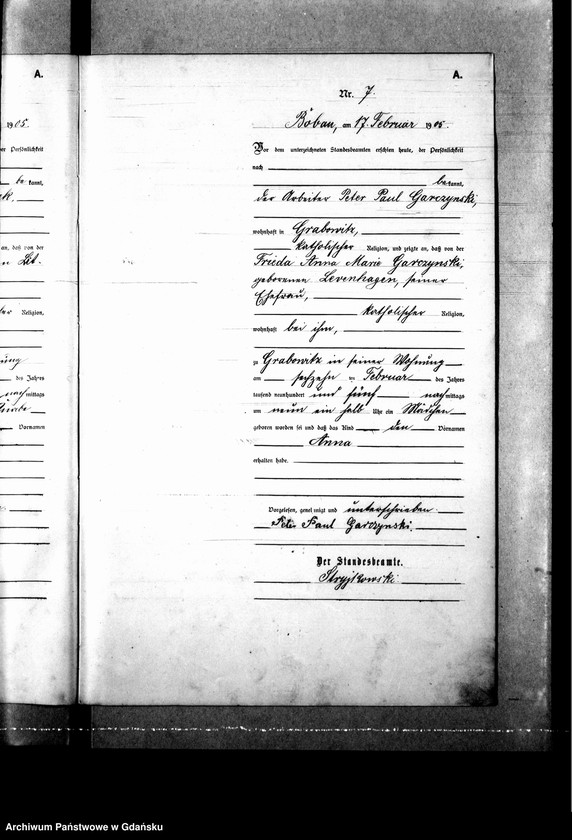 A.
1905.
der Persönlichkeit
be kannt,
k,
an, daß von der
Religion,
des Jahres
nachmittags
Vornamen
A.
Nr. 7.
Bobau, am 17. Februar 1905.
Vor dem unterzeichneten Standesbeamten erschien heute, der Persönlichkeit
nach
be kannt,
der Arbeiter Peter Paul Garczynski,
wohnhaft in Grabowitz,
katholischer Religion, und zeigte an, daß von der
Frieda Anna Marie Garczynski,
geborenen Levenhagen, seiner
Ehefrau,
katholischer Religion,
wohnhaft bei ihm,
zu Grabowitz in seiner Wohnung
am sechzehn ten Februar des Jahres
tausend neunhundert und fünf nachmittags
um neun ein halb Uhr ein Mädchen
geboren worden sei und daß das Kind den Vornamen
Anna
erhalten habe.
Vorgelesen, genehmigt und unterschrieben
Peter Paul Garczynski.
Der Standesbeamte.
Stryjkowski
Archiwum Państwowe w Gdańsku